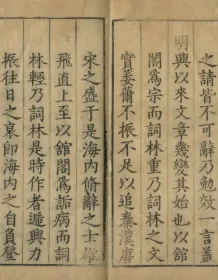 之請皆不可辭乃勉效一言蓋
明興以來文章幾變其始也以館
閣爲宗而詞林重乃詞林之文
實萎薾不振不足以追秦漢唐
宋之盛于是海内脩辭之士
飛直上至以舘閣爲詬病而詞
林輕乃詞林是時作者遞興力
振往日之衰即海内之自負登